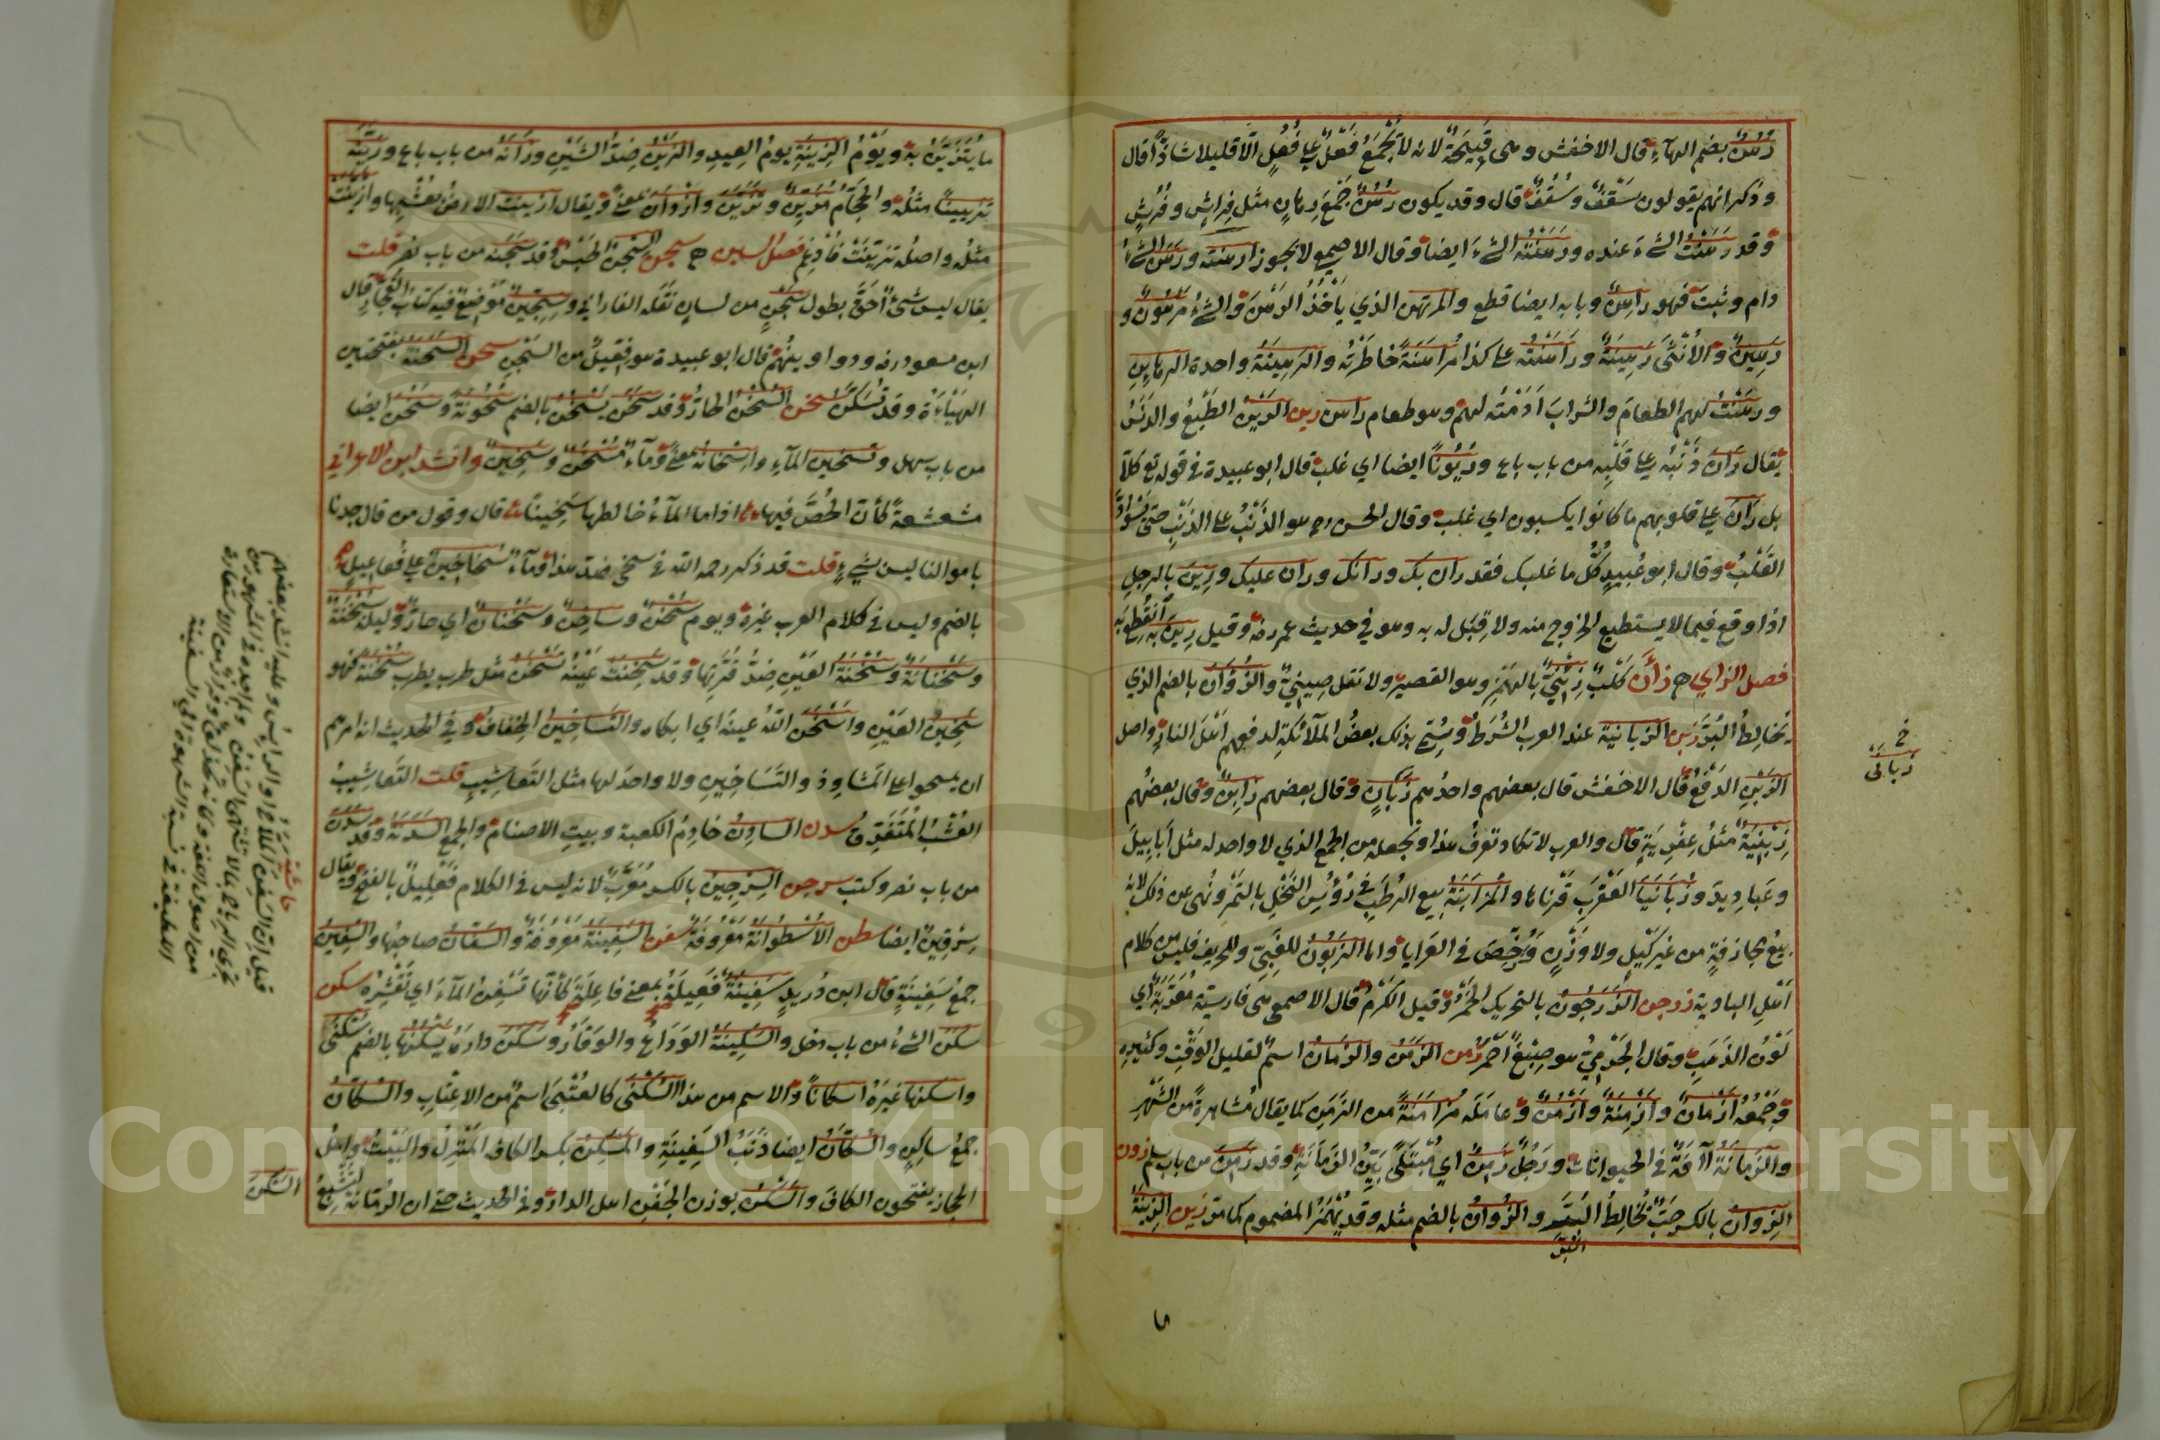 رُهُنٌ بضم الهاء قال الاخفش وهي قبيحة لانه لا يُجْمَعُ فَعْلٌ على فُعُلٍ الّا قليلا شاذّا قال
وذكر انهم يقولون سَقْفٌ وسُقُفٌ قال وقد يكون رُهُنٌ جَمْعَ رِهانٍ مثل فِراشٍ وفُرُشٍ
وقد رَهَنْتُ الشئَ عنده ورَهَنْتُه الشئَ ايضا وقال الاصمعي لا يجوز ارهنته ورَهَنَ الشئُ
دام وثبت فهو راهِنٌ وبابه ايضا قطع والمرتهن الذي يأخُذُ الرَهْنَ والشئُ مَرْهُونٌ و
رَهِينٌ والاُنْثَى رَهِينَةٌ وراهَنْتُه على كذا مُراهَنَةً خاطَرْتُه والرَهِينَةُ واحدة الرهاين
ورهَنْتُ لهم الطعامَ والشرابَ ادَمْتُه لهم وهو طعام راهن رين الرَيْنُ الطَبْعُ والدَنَسُ
يقال رانَ ذَنْبُه على قَلْبِه من باب باع ورُيُونًا ايضا اي غلب قال ابو عبيدة في قوله تع كلّا
بل رَانَ على قلوبهم ما كانوا يكسبون اي غلب وقال الحسن رح هو الذَنْبُ على الذَنْبِ حتى يَسْوادَّ
القَلْبُ وقال ابو عُبيدٍ كُلُّ ما غلبك فقد ران بك ورانك وران عليك ورِينَ بالرجل
اذا وقع فيما لا يستطيع الخروج منه ولا قِبَلَ له به وهو في حديث عمر رضه وقيل رِينَ به اُنْقُطِعَ به
فصل الزاي ج زأن كَلْبٌ زِئْنِيٌّ بالهَمْزِ وهو القصير ولا تقل صِينِيٌّ والزُؤانُ بالضم الذي
يُخالِطُ البُرَّ زبن الزبانية عند العرب الشُرَطُ وسُمِّي بذلك بعضُ الملآئكة لدفعهم اَهْلَ النار واصل
الزَبْنِ الدَفْعُ قال الاخفش قال بعضهم واحدُهم زَبَانٍ وقال بعضهم زابِنٌ وقال بعضُهم
زِبْنِيَةٌ مثلُ عِفْرِيَةٍ قال والعرب لا تكاد تعرفُ هذا وتجعله من الجمع الذي لا واحد له مثل اَبابيلَ
وعَبادِيدَ وزُبانَيا العَقْرَبِ قَرْناها والمُزابَنَةُ بيع الرطب في رُؤُسِ النَخْلِ بالتَمْرِ ونُهي عن ذلك لانه
بيعُ مجازفةٍ من غير كَيْلٍ ولا وَزْنٍ ورُخِّصَ في العَرايا واما الزَبُونُ للغَبِيِّ وللحريف فليس من كلام
اَهْلِ البادية زرجن الزَرَجُونُ بالتحريك الخَمْرُ وقيل الكَرْمُ قال الاصمعي هي فارسيّة مُعَرَّبَةٌ اي
لَوْنُ الذَهَبِ وقال الجَرْمِيُّ هو صِبْغٌ اَحْمَرُ زمن الزَمَنُ والزمانُ اسمٌ لقليل الوقت وكثيره
وجَمْعُه اَزْمانٌ واَزْمِنَةٌ واَزْمُنٌ وعامَلَه مُزامَنَةً من الزَمَنِ كما يقال مُشاهرةً من الشَهْرِ
والزَمانَةُ آفَةٌ في الحيوانات ورَجُلٌ زَمِنٌ اي مُبْتَلًى بَيِّنُ الزَمانَةِ وقد زَمِنَ من باب سلم زون
الزِوانُ بالكسر حَبٌّ يُخالِطُ البُرَّ والزُوانُ بالضم مثله وقد يُهْمَزُ المضموم كما مرّ زين الزِينَةُ
البُرّ
خ
زَبانى
ما يُتَزَيَّنُ به ويَوْمُ الزِينَةِ يومُ العِيدِ والزَيْنُ ضِدُّ الشَيْنِ وزانَهُ من باب باع وزَيَّنَه
تزيينًا مثلُه والحَجَّامُ مُزَيِّنٌ وتَزَيَّنَ وازْدَانَ بمعنًى ويقال ازينت الارضُ بعُشْبِها وازّيَّنَتْ
مثلُه واصلُه تزيّنَتْ فاُدْغِم فصل السين ج سجن السِجْنُ الحَبْسُ وقد سَجَنَه من باب نصر قلت
يقال ليس شئٌ اَحَقَّ بطول سِجْنٍ من لسانٍ نقله الفارابي وسِجِّينٌ مَوْضِعٌ فيه كتابُ الفُجّارِ قال
ابن مسعود رضه ودواوينُهم قال ابو عبيدة هو فِعِّيلٌ من السَجْنِ سحن السَحَنَةُ بفتحتين
الهَيْأةُ وقد تُسَكَّنُ سخن السُخْنُ الحارُّ وقد سَخَنَ يَسْخُنُ بالضم سُخُونَةً وسَخُنَ ايضا
من باب سهل وتسخين الماءِ واِسْخانُه بمعنًى وماءٌ مُسَخَّنٌ وسَخِينٌ وانشد ابن الاعرابي
مشعشعةً كأنّ الحُصَّ فيها اذا ما المآءُ خالطها سَخِينا قال وقول من قال جدنا
باموالنا ليس بشيءٍ قلت قد ذكر رحمه الله في سخى ضد هذا وماءٌ سُخاخِينُ على فُعاعِيلٍ
بالضم وليس في كلام العرب غيرُه ويوم سُخْنٌ وساخِنٌ وسُخْنانٌ اي حارٌّ وليلةٌ سُخْنَةٌ
وسُخْنانَةٌ وسُخْنَةُ العَيْنِ ضِدُّ قُرَّتِها وقد سَخِنَتْ عَيْنُه تَسْخَنُ مثل طرب يطرب سُخْنَةً فهو
سَخِينُ العَيْنِ واَسْخَنَ اللهُ عينَه اي ابكاه والتَساخِينُ الخِفافُ وفي الحديث انه امرهم
ان يمسحوا على المَشاوِذِ والتَساخِينِ ولا واحدَ لها مثل التَعاشيب قلت التَعاشيبُ
العُشْبُ المُتَفَرِّقُ سدن السادِنُ خادِمُ الكعبة وبيتِ الاصنام والجمع السَدَنَةُ وقد سَدَنَ
من باب نصر وكتب سرجن السِرْجِينُ بالكسر مُعَرَّبٌ لانه ليس في الكلام فَعْلِيلٌ بالفتح ويقال
سِرْقِينٌ ايضا سطن الاُسْطُوانَةُ مَعْرُوفَةٌ سفن السَفِينَةُ مَعْرُوفَةٌ والسَفّانُ صاحبُها والسَفِينُ
جمعُ سَفِينَةٍ قال ابن دُريدٍ سَفِينَةٌ فَعِيلَةٌ بمعنى فاعِلَةٍ كأنّها تَسْفِنُ المآءَ اي تَقْشِرُه سكن
سَكَنَ الشئُ من باب دخل والسَكِينَةُ الوَدَاعُ والوَقارُ وسَكَنَ دارَه يَسْكُنُها بالضم سُكْنَى
واسكنها غيرَه اسكانًا والاسم من هذا السُكْنَى كالعُتْبَى اسمٌ من الاعْتابِ والسُكّانُ
جمعُ ساكِنٍ والسُكّانُ ايضا ذَنَبُ السَفِينَةِ والمَسْكِنُ بكسر الكاف المَنْزِلُ والبَيْتُ واهلُ
الحجاز يفتحون الكافَ والسَكْنُ بوزن الجَفْنِ اهل الدار وفي الحديث حتى ان الرُمّانة لتُشْبِعُ
السَكْنَ
حاشية